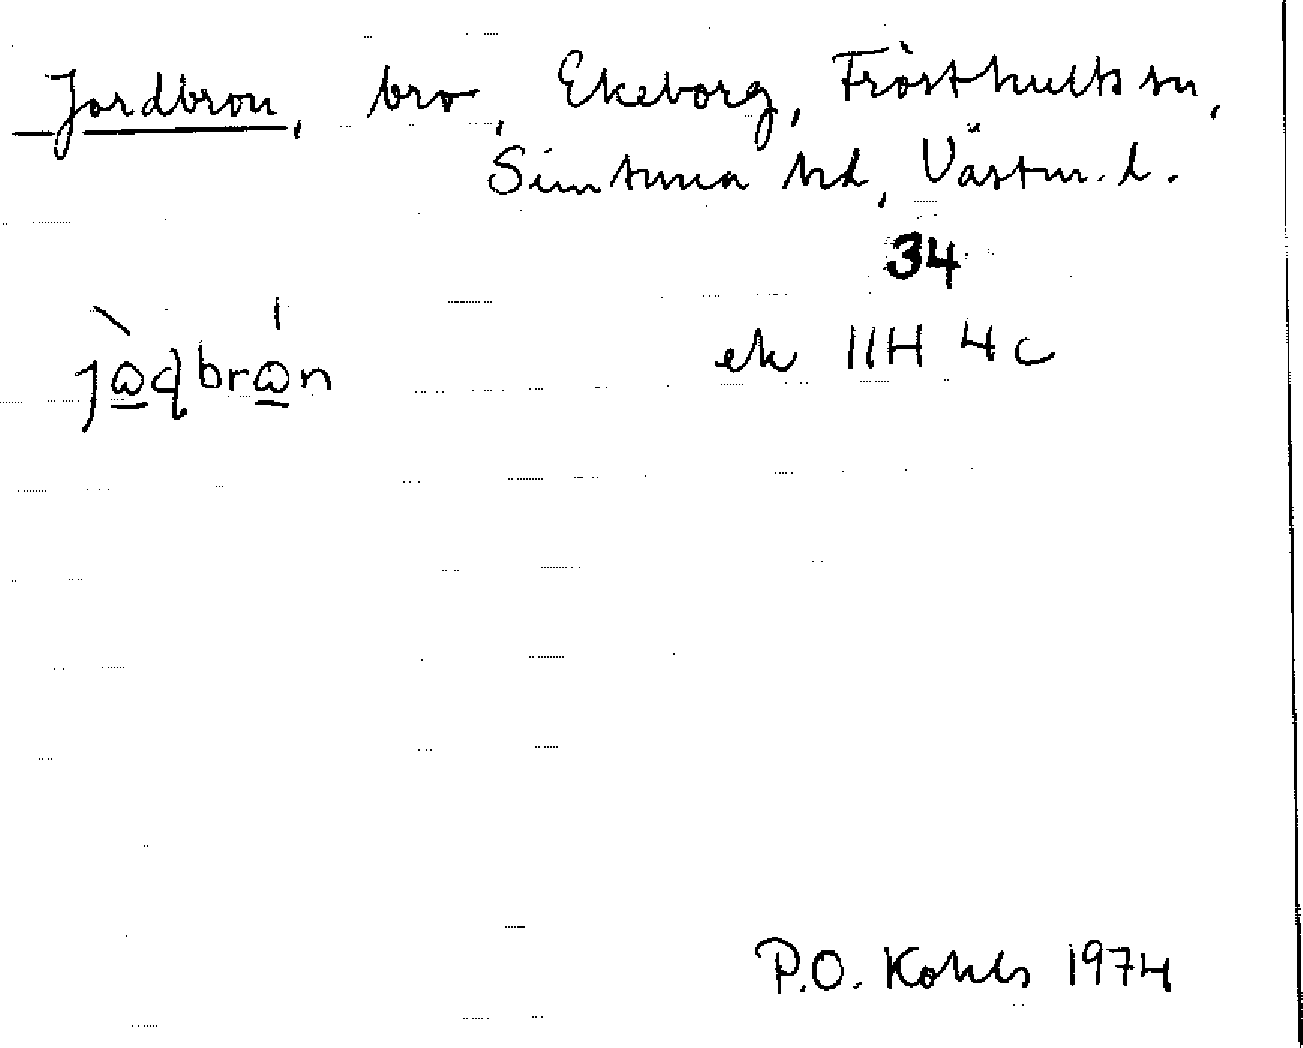 Jordbron, bro, Ekeborg, Frösthults sn,
Simtuna hd, Västm. l.
34
ek 11H 4c
P.O. Kohls 1974